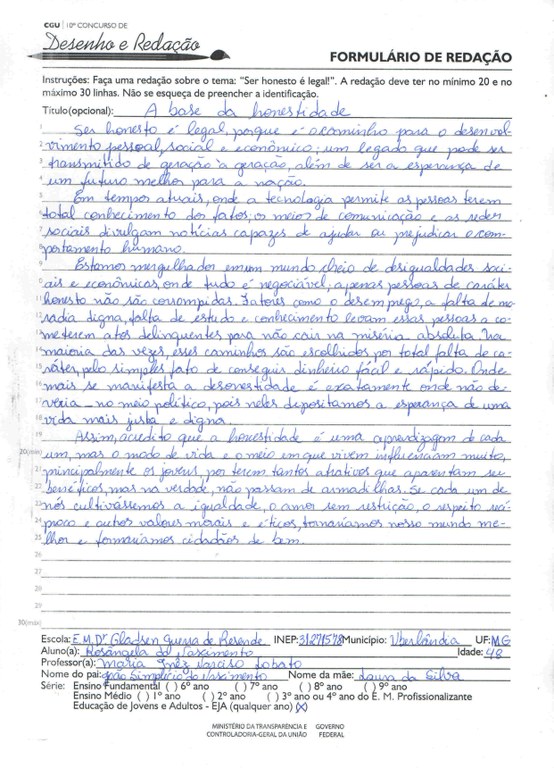 CGU | 10º CONCURSO DE
Desenho e Redação
FORMULÁRIO DE REDAÇÃO
Instruções: Faça uma redação sobre o tema: "Ser honesto é legal!". A redação deve ter no mínimo 20 e no
máximo 30 linhas. Não se esqueça de preencher a identificação.
Título(opcional): A base da honestidade
1 Ser honesto é legal, porque é o caminho para o desenvol-
2 vimento pessoal, social e econômico; um legado que pode ser
3 transmitido de geração à geração, além de ser a esperança de
4 um futuro melhor para a nação.
5 Em tempos atuais, onde a tecnologia permite as pessoas terem
6 total conhecimento dos fatos, os meios de comunicação e as redes
7 sociais divulgam notícias capazes de ajudar ou prejudicar o com-
8 portamento humano.
9 Estamos mergulhados em um mundo cheio de desigualdades soci-
10 ais e econômicas, onde tudo é negociável, apenas pessoas de caráter
11 honesto não são corrompidas. Fatores como o desemprego, a falta de mo-
12 radia digna, falta de estudo e conhecimento levam essas pessoas a co-
13 meterem atos delinquentes para não cair na miséria absoluta. Na
14 maioria das vezes, esses caminhos são escolhidos por total falta de ca-
15 ráter, pelo simples fato de conseguir dinheiro fácil e rápido. Onde
16 mais se manifesta a desonestidade é exatamente onde não de-
17 veria - no meio político, pois neles depositamos a esperança de uma
18 vida mais justa e digna.
19 Assim, acredito que a honestidade é uma aprendizagem de cada
20(min) um, mas o modo de vida e o meio em que vivem influenciam muito,
21 principalmente os jovens, por terem tantos atrativos que aparentam ser
22 benéficos, mas na verdade, não passam de armadilhas. Se cada um de
23 nós cultivássemos a igualdade, o amor sem restrição, o respeito recí-
24 proco e outros valores morais e éticos, tornaríamos nosso mundo me-
25 lhor e formaríamos cidadãos de bem.
26
27
28
29
30(máx)
Escola: E.M.Drº Gladsen Guerra de Resende INEP: 31271578 Município: Uberlândia UF: MG
Aluno(a): Rosângela do Nascimento Idade: 48
Professor(a): Maria Inêz Narciso Lobato
Nome do pai: João Simplício do Nascimento Nome da mãe: Laura da Silva
Série: Ensino Fundamental ( ) 6º ano ( ) 7º ano ( ) 8º ano ( ) 9º ano
Ensino Médio ( ) 1º ano ( ) 2º ano ( ) 3º ano ou 4º ano do E. M. Profissionalizante
Educação de Jovens e Adultos - EJA (qualquer ano) (x)
MINISTÉRIO DA TRANSPARÊNCIA E GOVERNO
CONTROLADORIA-GERAL DA UNIÃO FEDERAL